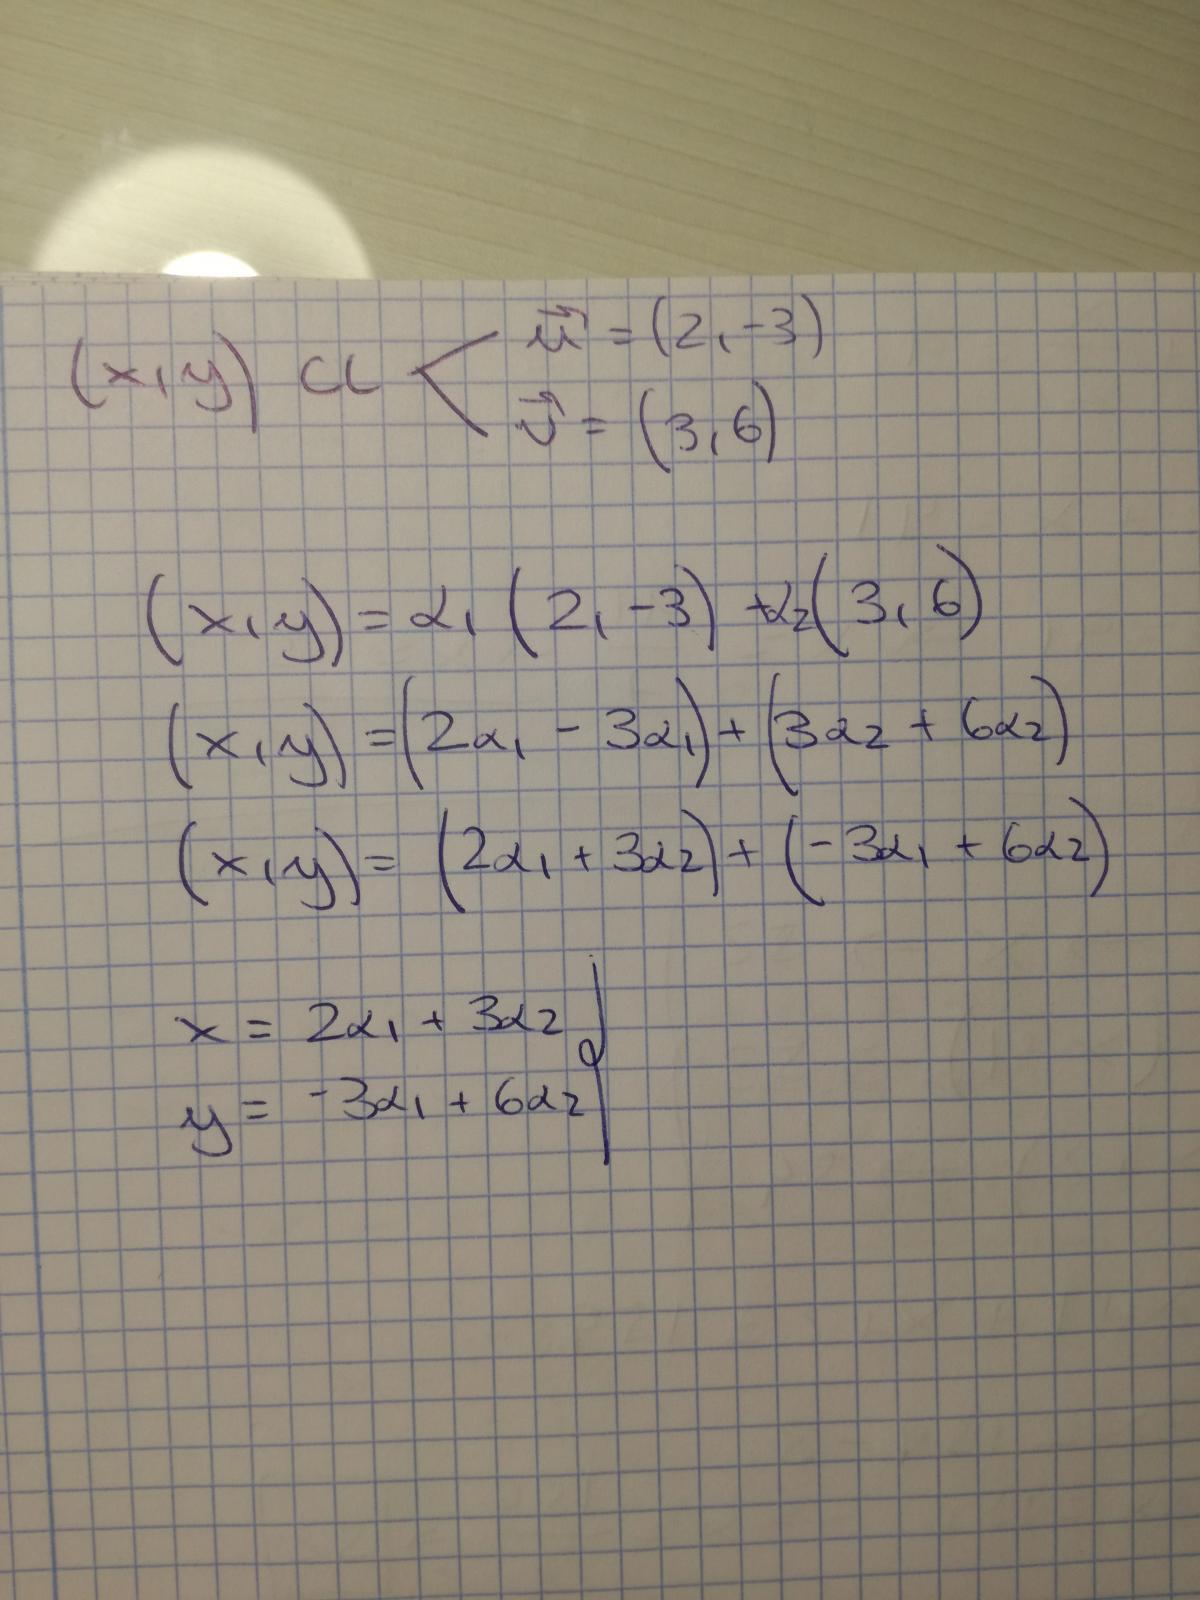 (x,y) CL < u⃗ = (2,-3)
v⃗ = (3,6)
(x,y) = α₁ (2,-3) + α₂ (3,6)
(x,y) = (2α₁ - 3α₁) + (3α₂ + 6α₂)
(x,y) = (2α₁ + 3α₂) + (-3α₁ + 6α₂)
x = 2α₁ + 3α₂
y = -3α₁ + 6α₂